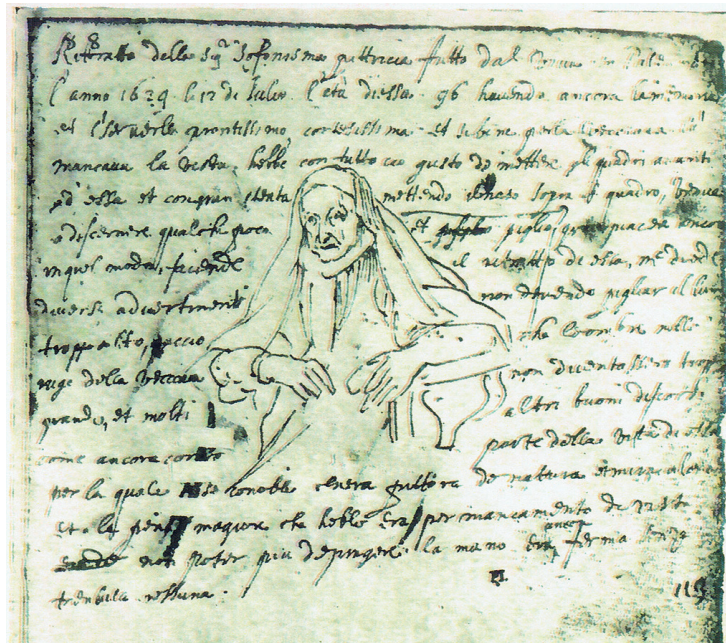 Rittratto della Sigra Sofonisma pittricia fatto dal vivo in Pale
l'anno 1629 li 12 di Julio l'età di essa 96 havendo ancora la memoria
et il servello prontissimo cortesissima et sebene per la vecciaia
mancava la vista hebbe con tutto ciò gusto de mettere gli quadri avanti
ad essa et con gran stenta mettendo il naso sopra il quadro,
a discernere qualche poco et piglio gran piacer ancora
in quel modo, facendo il ritratto di essa, me diede
diversi advertimenti non devendo pigliar il lume
troppo alto, accio che l'ombra nelle
ruge della vecciaia non diventassero tropp
grande, et molti altri buoni discorsi
come ancora conto parte della vita di essa
per la quale se conobbe ch'era pittora de natura et
et la pena magiore che hebbe era per mancamento di vista
non poter piu depingere la mano era ancora ferma senza
tremula nessuna.